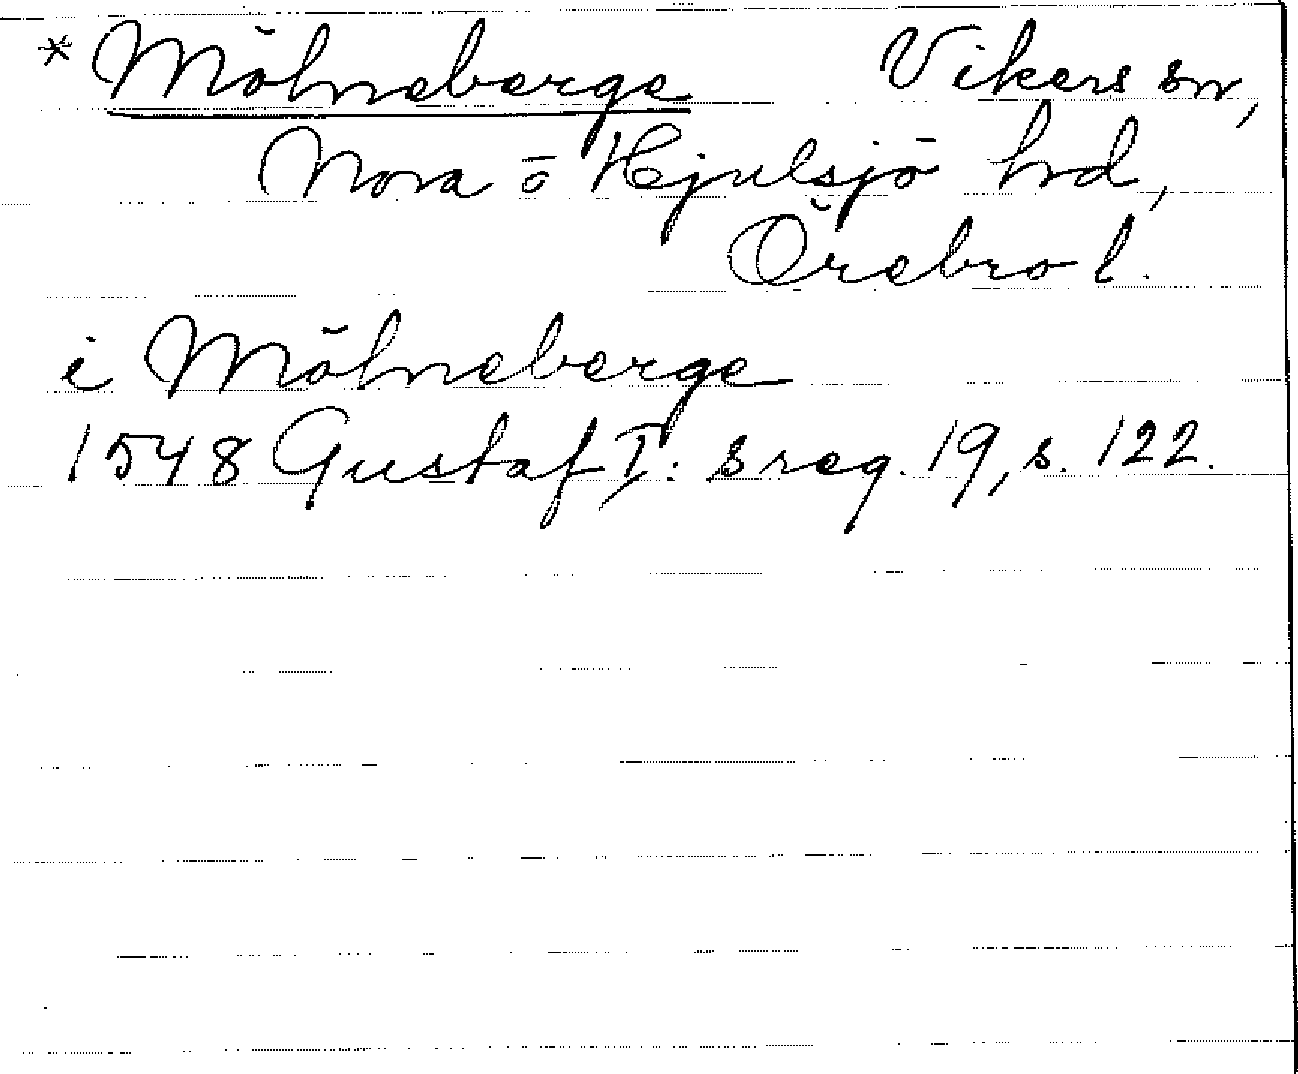 * Mölneberge Vikers sn,
Nora o Hjulsjö hrd,
Örebro l.
i Mölneberge
1548 Gustaf I: s reg. 19, s. 122.